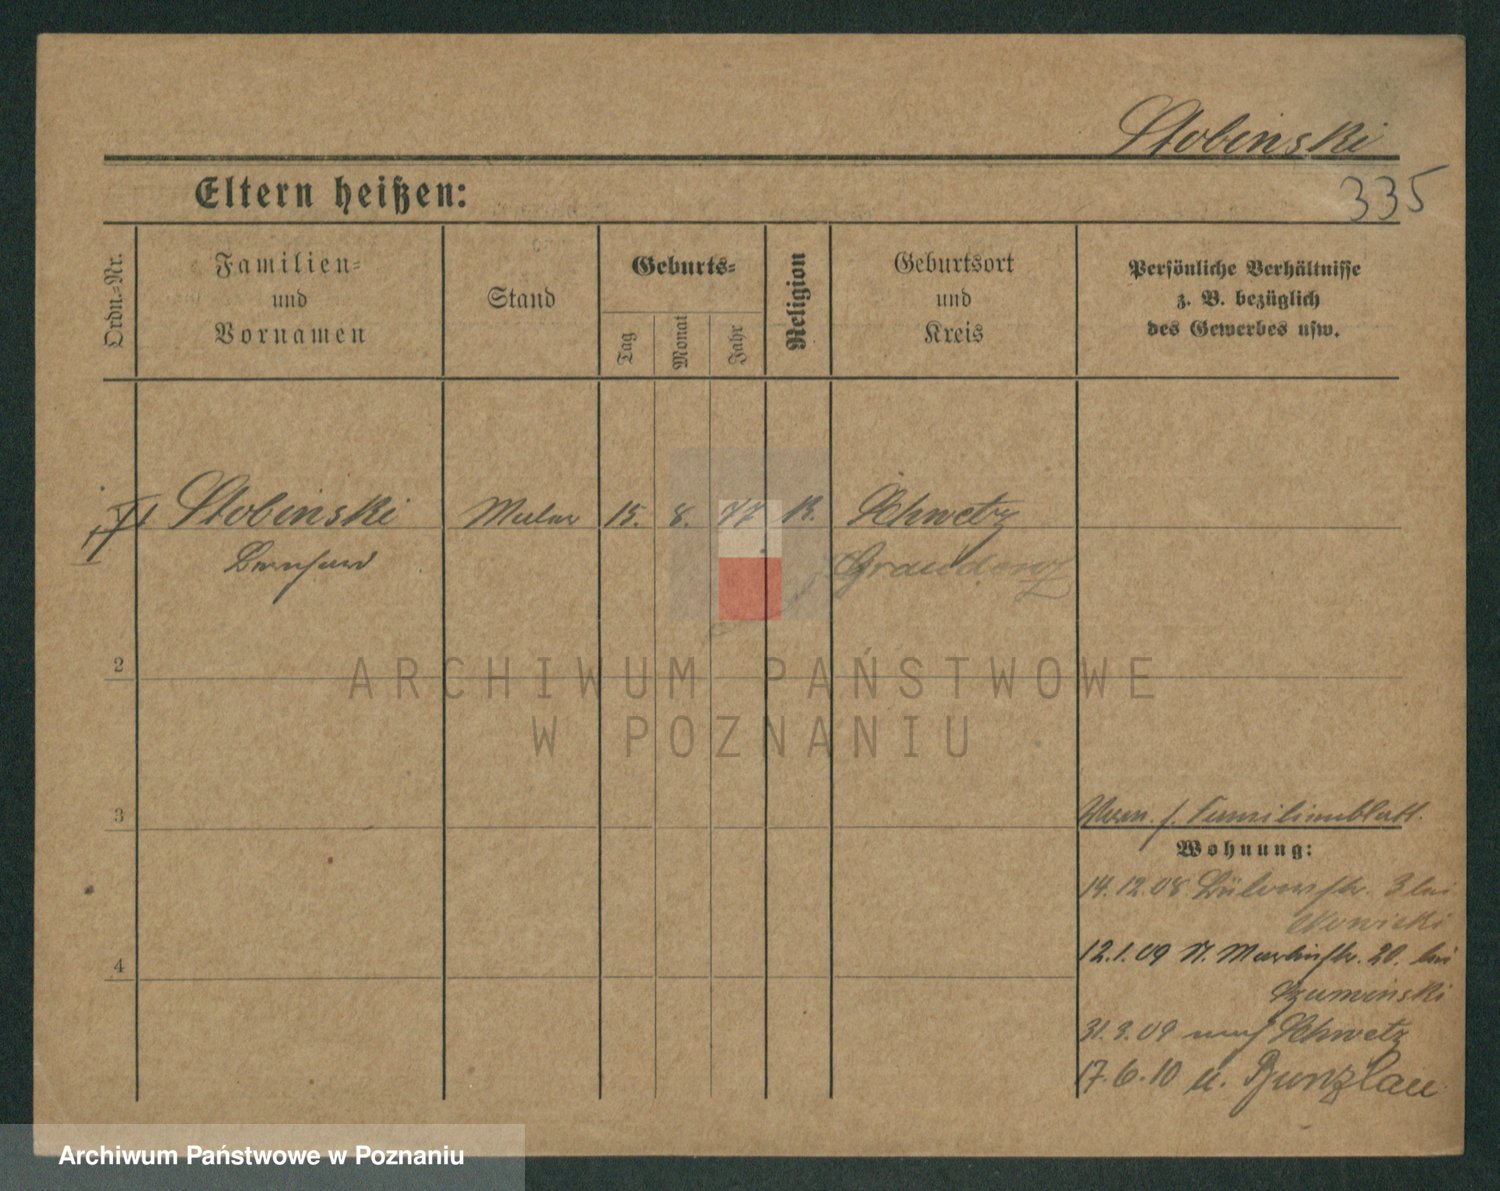 Stobinski
335
Eltern heißen:
Ordn.-Nr.
Familien-
und
Vornamen
Stand
Geburts-
Tag
Monat
Jahr
Religion
Geburtsort
und
Kreis
Persönliche Verhältnisse
z. B. bezüglich
des Gewerbes usw.
Stobinski Maler 15. 8. 77 K. Schwetz
Bernhard Graudenz
2
3
4
Verm. s. Familienblatt.
Wohnung:
14.12.08 Bülowstr. 3 bei
Nowicki
12.1.09 St. Martinstr. 20. bei
Szuminski
31.3.09 nach Schwetz
17.6.10 n. Bunzlau
ARCHIWUM PAŃSTWOWE
W POZNANIU
Archiwum Państwowe w Poznaniu